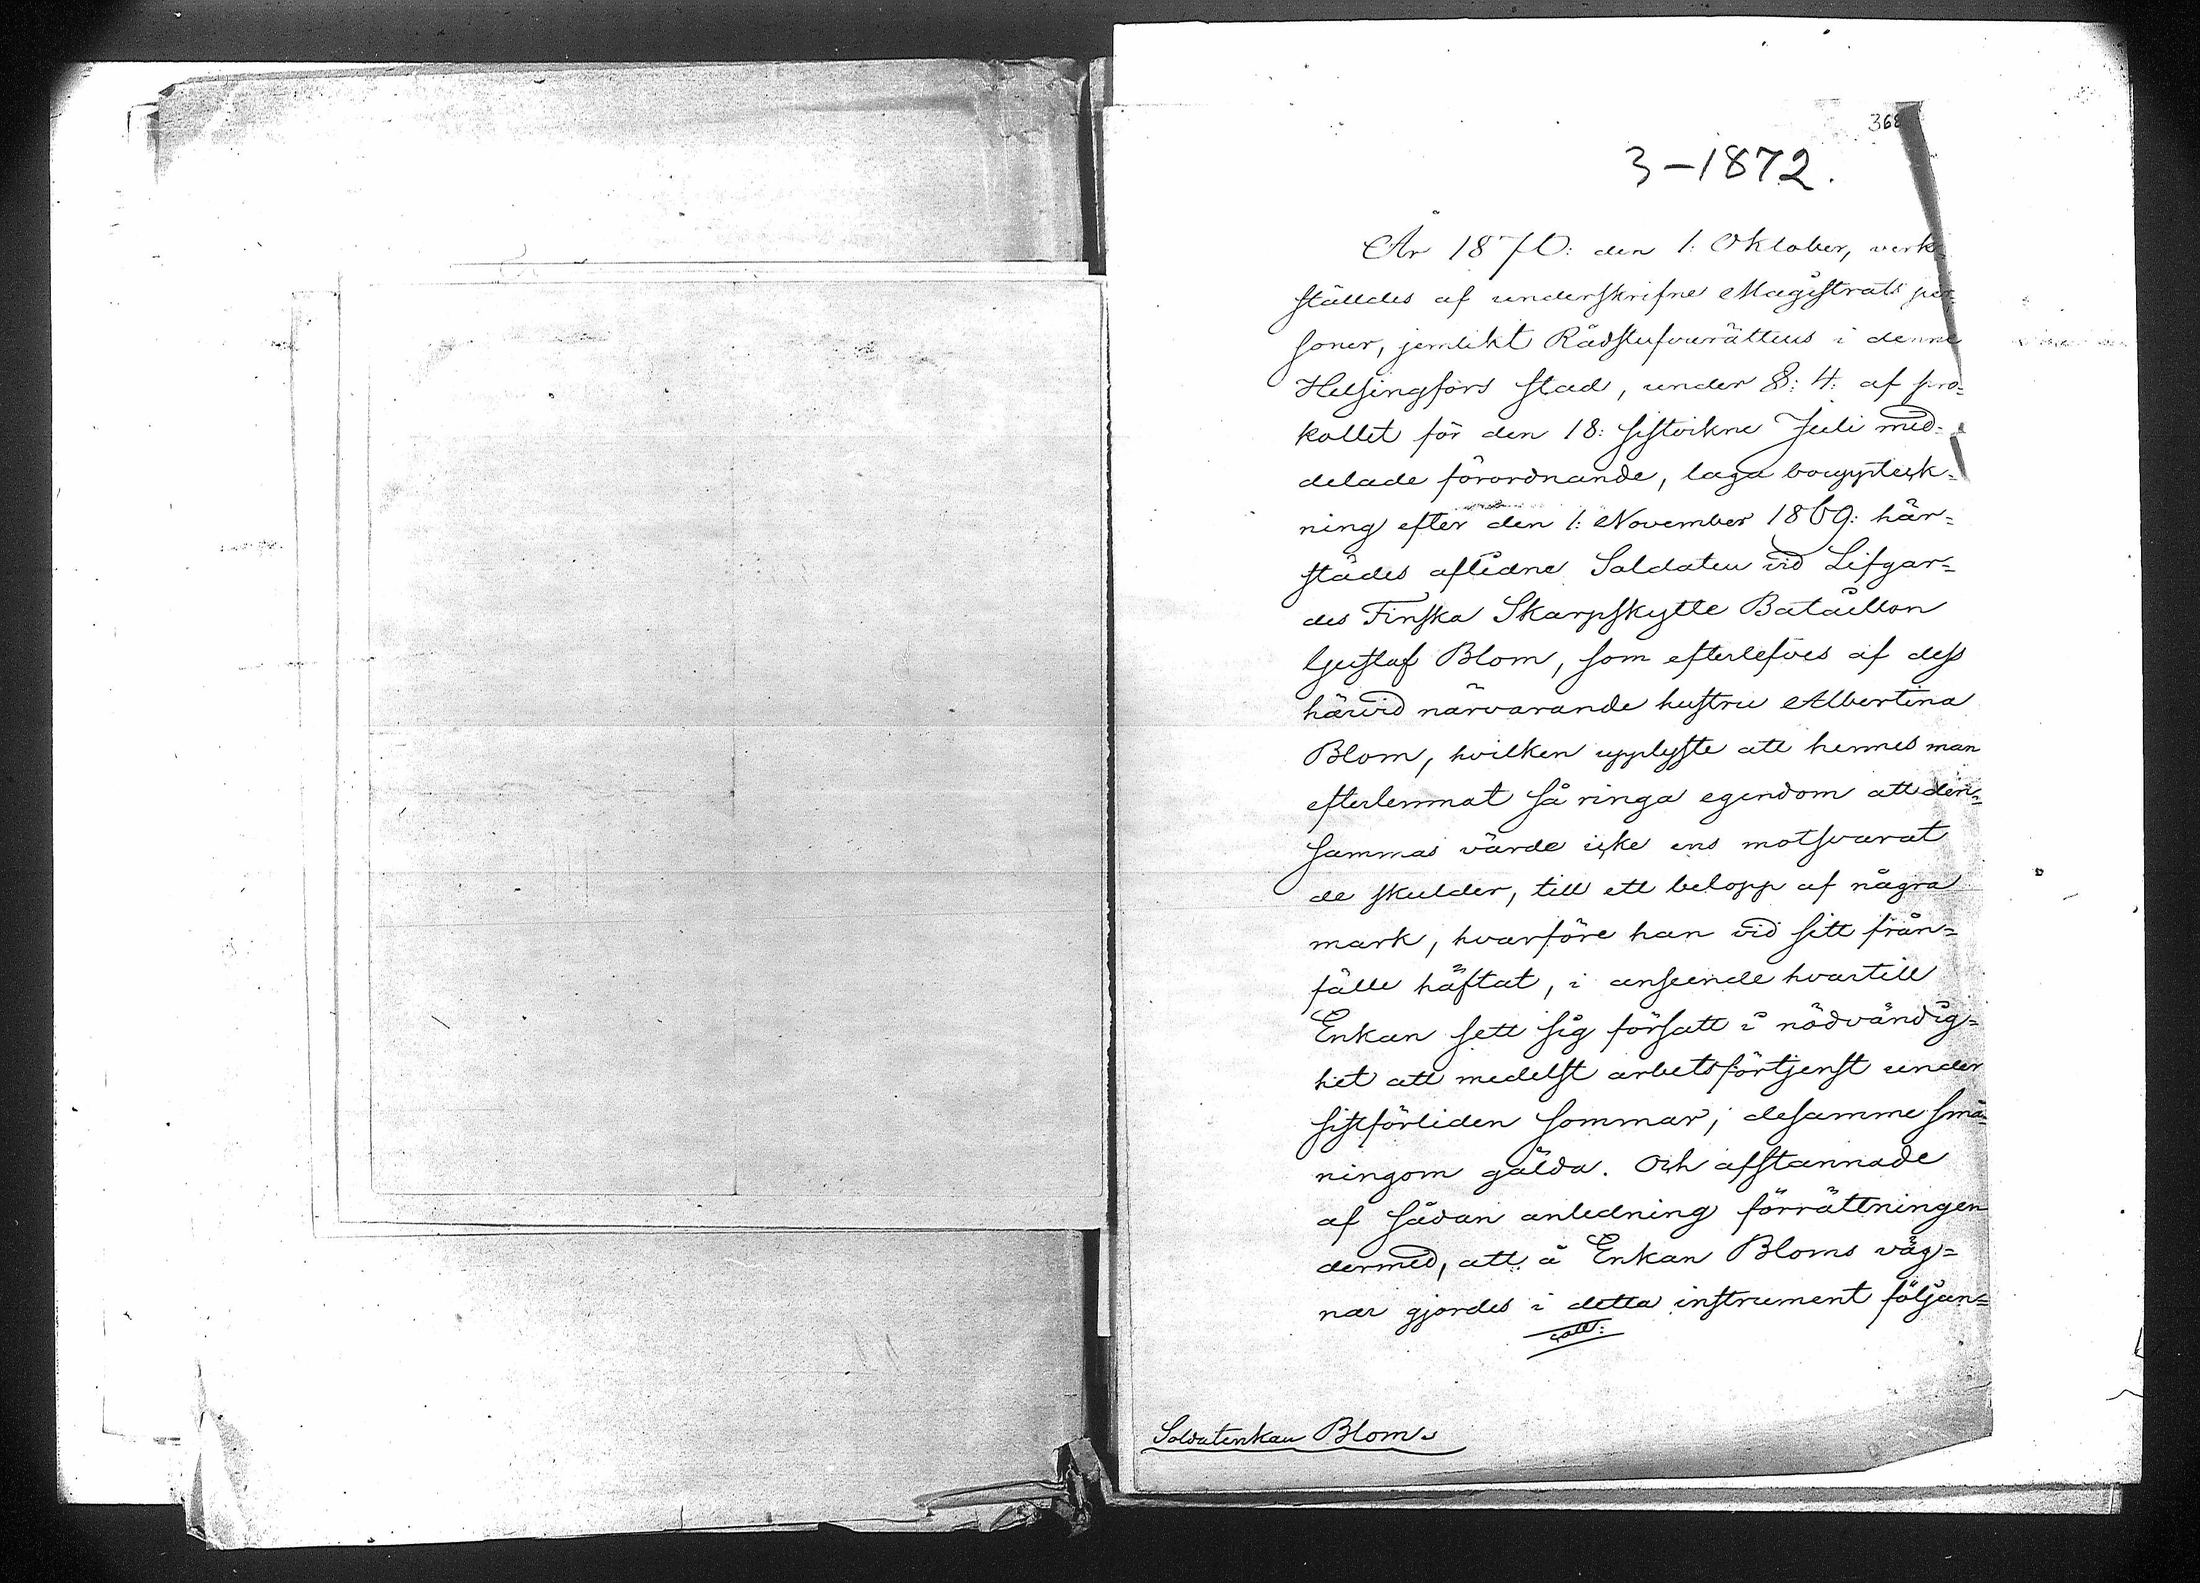 368
3-1872.
År 1870: den 1: Oktober, verk-
ställdes af underskrifne Magistrats per-
soner, jemlikt Rådstufvurättens i denne
Helsingfors stad, under §: 4: af pro-
kollet för den 18: sistvikne Juli med-
delade förordnande, laga bouppteck-
ning efter den 1: November 1869: här-
städes aflidne Soldaten vid Lifgar-
des Finska Skarpskytte Bataillon
Gustaf Blom, som efterlefves af dess
härvid närvarande hustru Albertina
Blom, hvilken upplyste att hennes man
efterlemnat så ringa egendom att den-
sammas värde icke ens motsvarat
de skulder, till ett belopp af några
mark, hvarföre han vid sitt från-
fälle häftat, i anseende hvartill
Enkan sett sig försatt i nödvändig-
het att medelst arbetsförtjenst under
sistförliden sommar, desamme små-
ningom gälda. Och afstannade
af sådan anledning förrättningen
dermed, att å Enkan Bloms väg-
nar gjordes i detta instrument följan-
Soldatenkan Blom